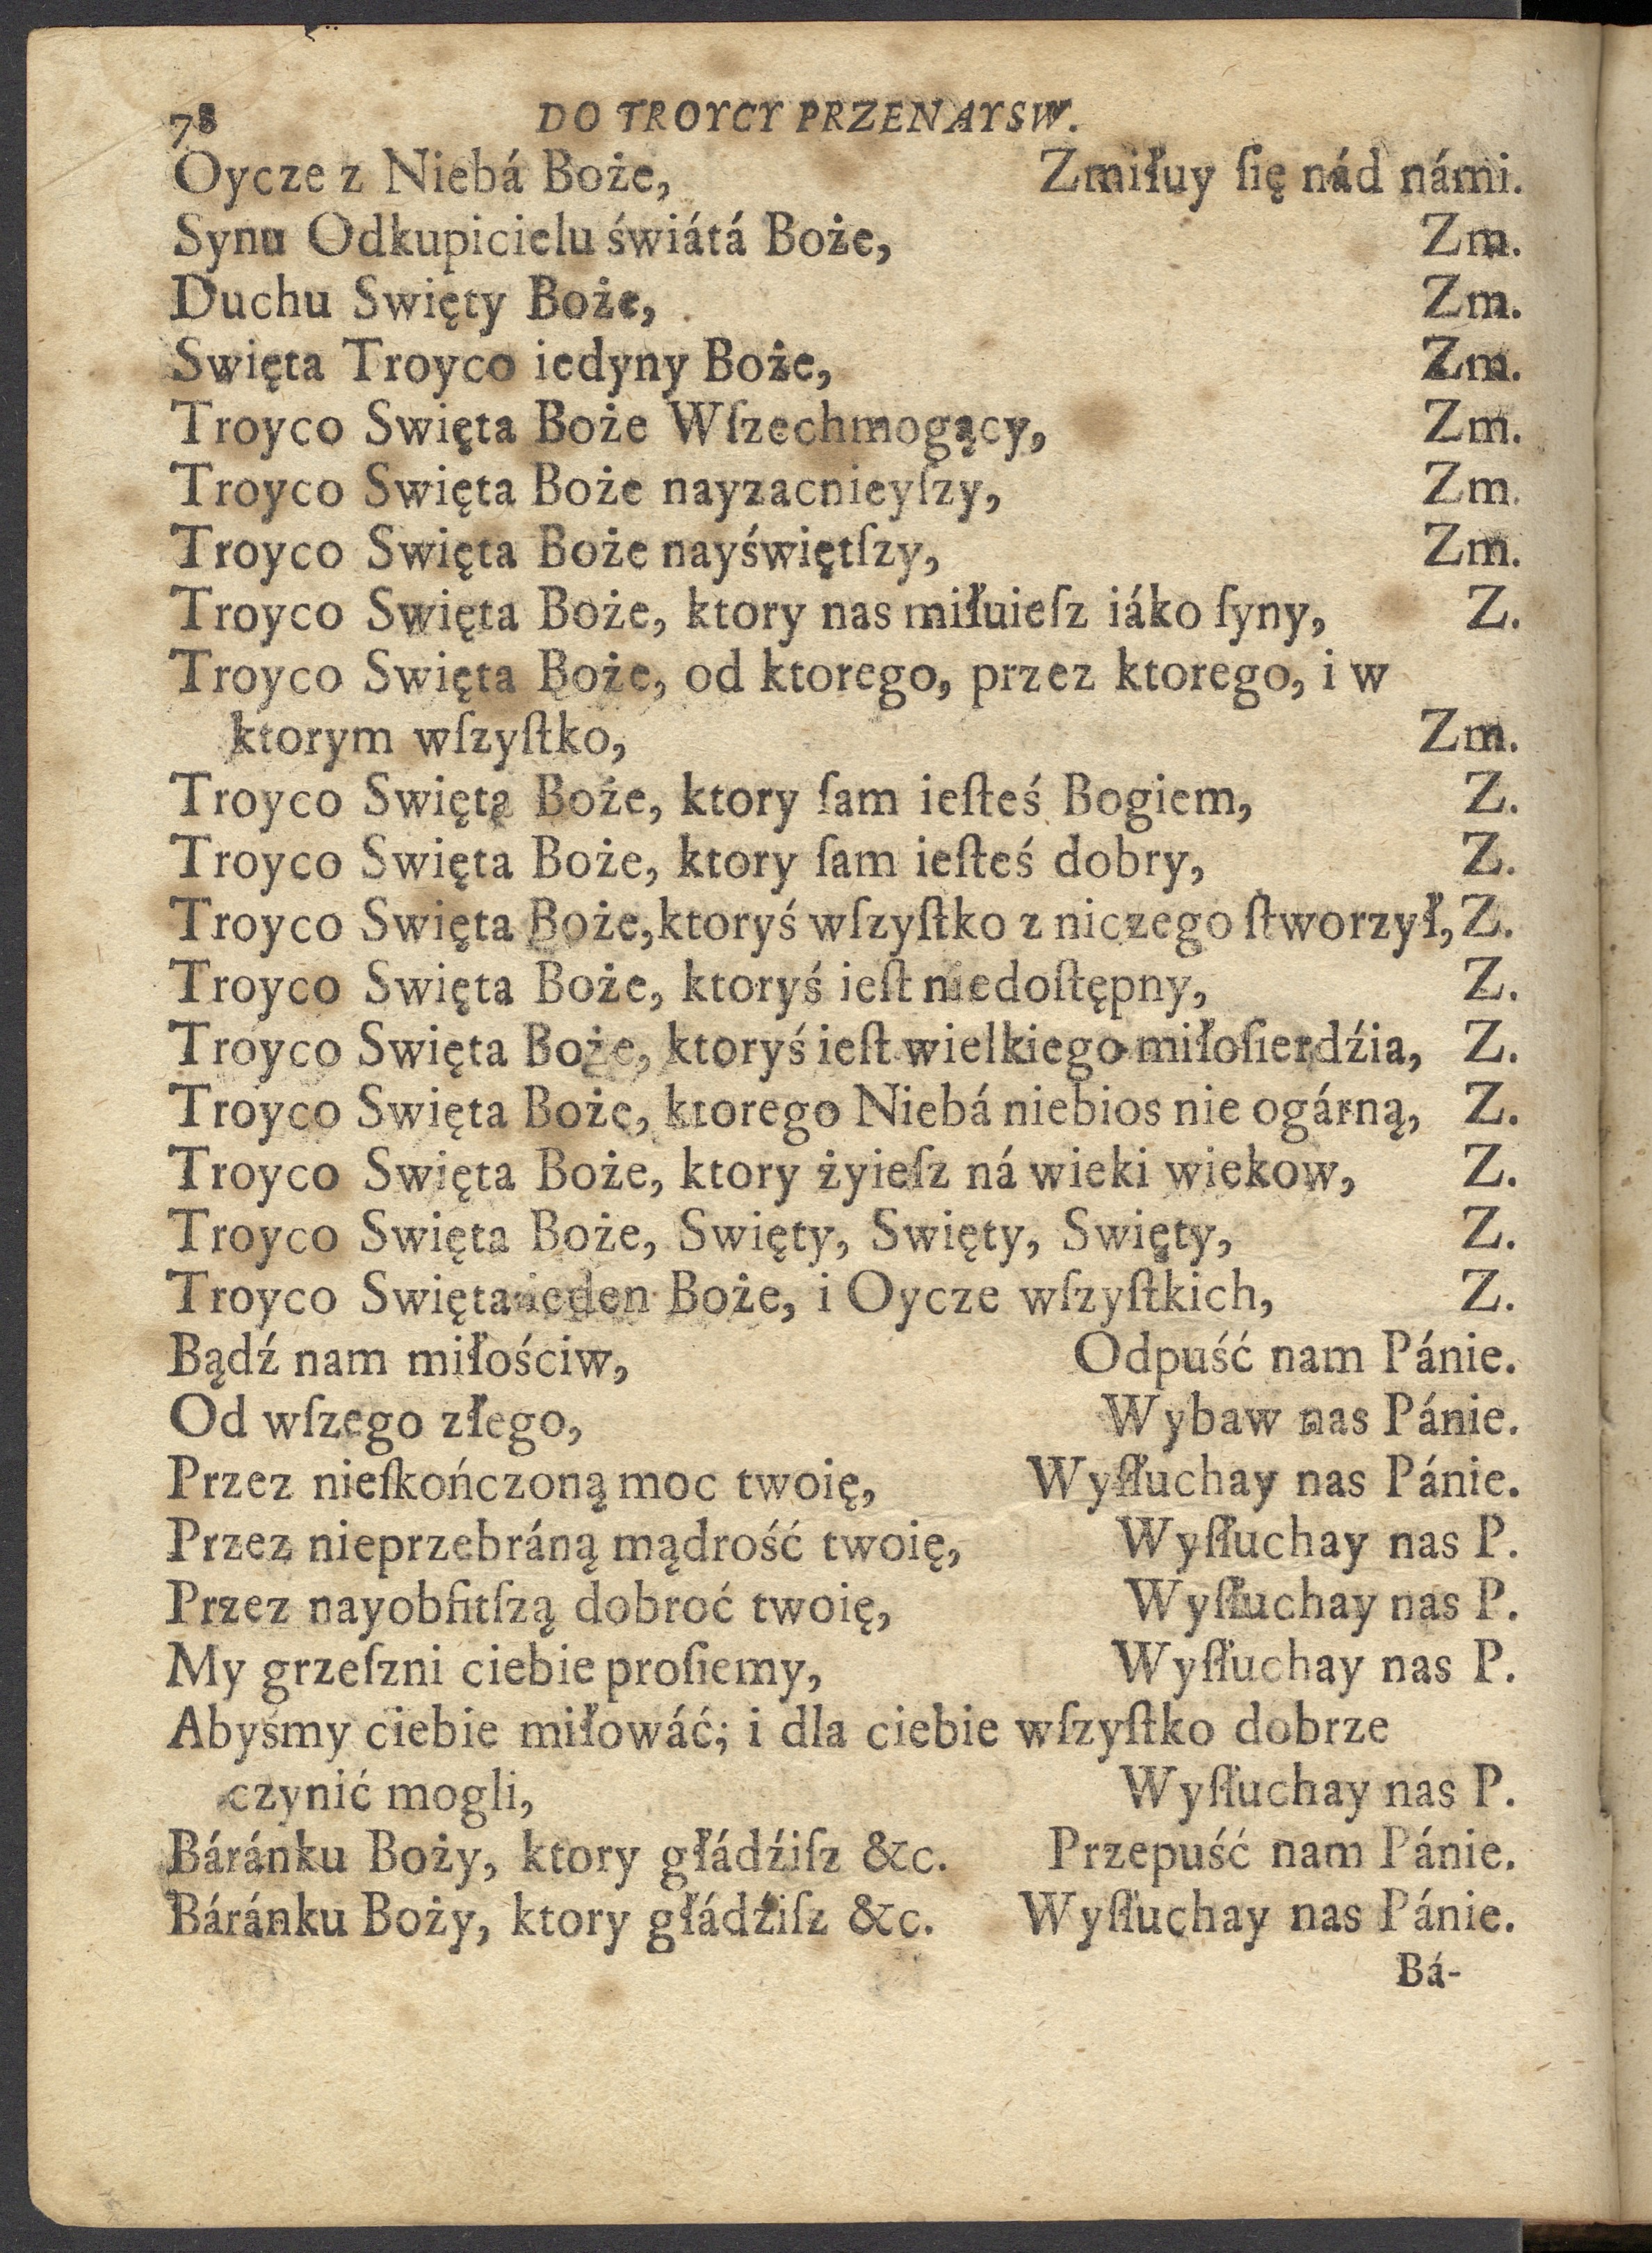 78 DO TROYCY PRZENAYSW.
Oycze z Niebá Boże, Zmiłuy ſię nád námi.
Synu Odkupicielu świátá Boże, Zm.
Duchu Swięty Boże, Zm.
Swięta Troyco iedyny Boże, Zm.
Troyco Swięta Boże Wſzechmogący, Zm.
Troyco Swięta Boże nayzacnieyſzy, Zm.
Troyco Swięta Boże nayświętſzy, Zm.
Troyco Swięta Boże, ktory nas miłuieſz iáko ſyny, Z.
Troyco Swięta Boże, od ktorego, przez ktorego, i w
ktorym wſzyſtko, Zm.
Troyco Swięta Boże, ktory ſam ieſteś Bogiem, Z.
Troyco Swięta Boże, ktory ſam ieſteś dobry, Z.
Troyco Swięta Boże, ktoryś wſzyſtko z niczego ſtworzył, Z.
Troyco Swięta Boże, ktoryś ieſt niedoſtępny, Z.
Troyco Swięta Boże, ktoryś ieſt wielkiego miłoſierdźia, Z.
Troyco Swięta Boże, ktorego Niebá niebios nie ogárną, Z.
Troyco Swięta Boże, ktory żyieſz ná wieki wiekow, Z.
Troyco Swięta Boże, Swięty, Swięty, Swięty, Z.
Troyco Swięta ieden Boże, i Oycze wſzyſtkich, Z.
Bądź nam miłośćiw, Odpuść nam Pánie.
Od wſzego złego, Wybaw nas Pánie.
Przez nieſkończoną moc twoię, Wyſłuchay nas Pánie.
Przez nieprzebráną mądrość twoię, Wyſłuchay nas P.
Przez nayobfitſzą dobroć twoię, Wyſłuchay nas P.
My grzeſzni ciebie proſiemy, Wyſłuchay nas P.
Abyśmy ciebie miłowáć; i dla ciebie wſzyſtko dobrze
czynić mogli, Wyſłuchay nas P.
Báránku Boży, ktory głádźiſz &c. Przepuść nam Pánie.
Báránku Boży, ktory głádźiſz &c. Wyſłuchay nas Pánie.
Bá-